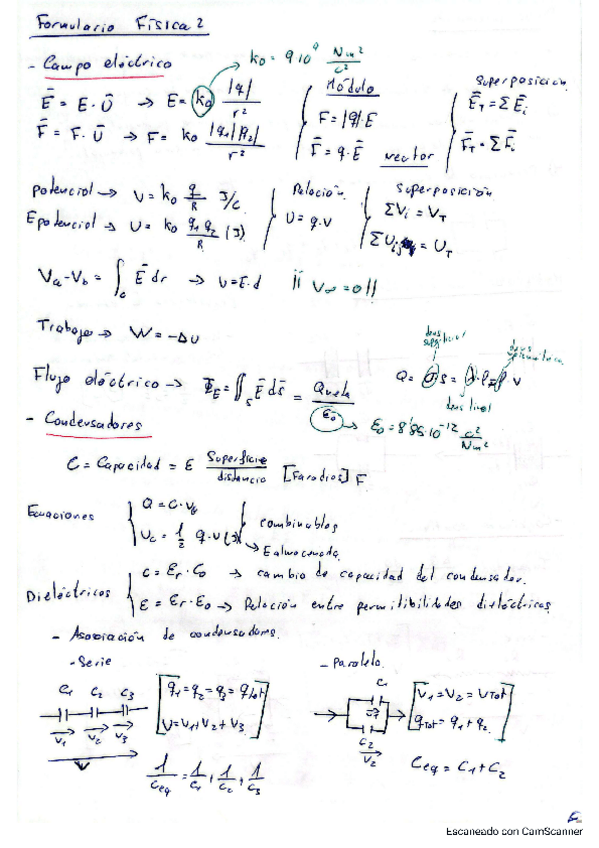 Formulario Física 2
- Campo eléctrico
k₀ = 9·10⁹ Nm²/c²
E⃗ = E · U⃗ → E = k₀ |q|/r²
F⃗ = F · U⃗ → F = k₀ |q₁||q₂|/r²
Módulo
F = |q|·E
F⃗ = q·E⃗ vector
Superposición
E⃗_T = Σ E⃗ᵢ
F⃗_T = Σ F⃗ᵢ
Potencial → V = k₀ q/R J/c
Epotencial → U = k₀ q₁q₂/R (J)
Relación
U = q·v
Superposición
ΣVᵢ = V_T
ΣUᵢⱼ = U_T
Va - Vb = ∫c E⃗ dr → V = E·d || V∞ = 0 ||
Trabajo → W = -ΔU
Flujo eléctrico → Φ_E = ∬s E⃗ ds⃗ = Qneta/ε₀
ε₀ = 8'85·10⁻¹² c²/Nm²
dens superficial
dens volumétrica
Q = σ·s = λ·l = ρ·v
dens lineal
- Condensadores
C = Capacidad = ε Superficie/distancia [Faradios] F
Ecuaciones
Q = C·V
U_c = 1/2 q·v (J)
combinables
→ E almacenada
Dieléctricos
C = εr · C₀ → cambio de capacidad del condensador.
ε = εr · ε₀ → Relación entre permitibilidades dieléctricas
- Asociación de condensadores.
- Serie
C₁ C₂ C₃
V₁ V₂ V₃
V
q₁ = q₂ = q₃ = qTot
V = V₁ + V₂ + V₃
1/Ceq = 1/C₁ + 1/C₂ + 1/C₃
- Paralelo
C₁
C₂
V₂
V₁ = V₂ = VTot
qTot = q₁ + q₂
Ceq = C₁ + C₂
Escaneado con CamScanner